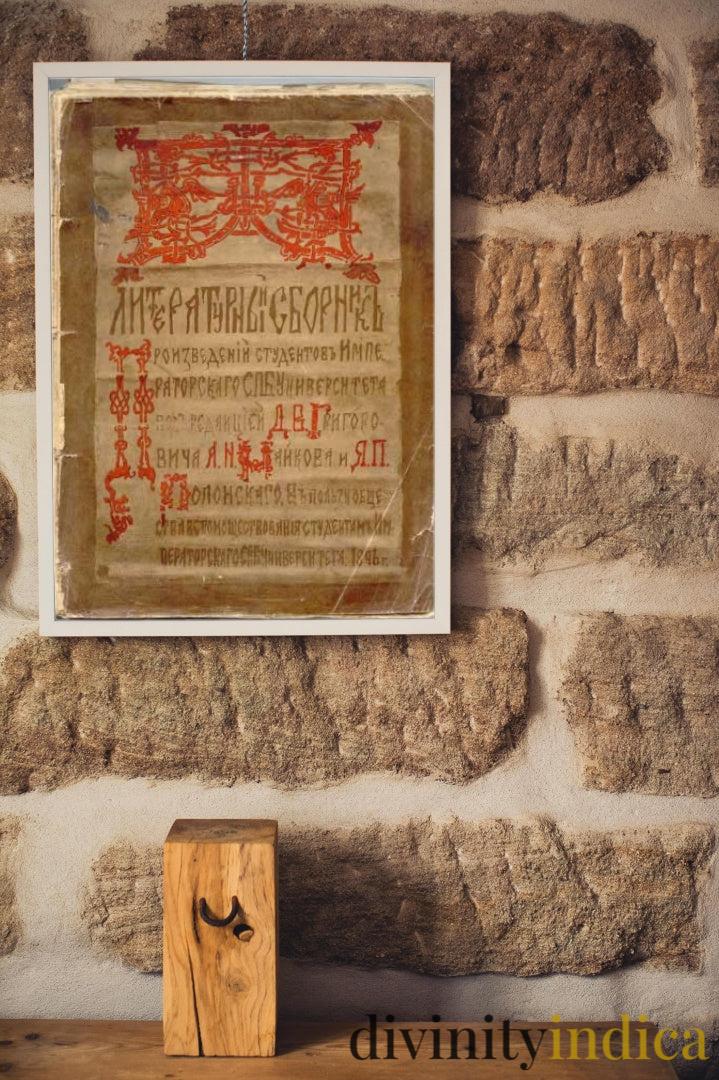 ЛИТЕРАТУРНЫЙ СБОРНИКЪ
ПРОИЗВЕДЕНІЙ СТУДЕНТОВЪ ИМПЕ
РАТОРСКАГО СПБ УНИВЕРСИТЕТА
ПОДЪ РЕДАКЦІЕЙ Д.В. ГРИГОРО-
ВИЧА А.Н. МАЙКОВА и Я.П.
ПОЛОНСКАГО. ВЪ ПОЛЬЗУ ОБЩЕ-
СТВА ВСПОМОЩЕСТВОВАНІЯ СТУДЕНТАМЪ ИМ-
ПЕРАТОРСКАГО СПБ УНИВЕРСИТЕТА. 1896 г.
divinityindica